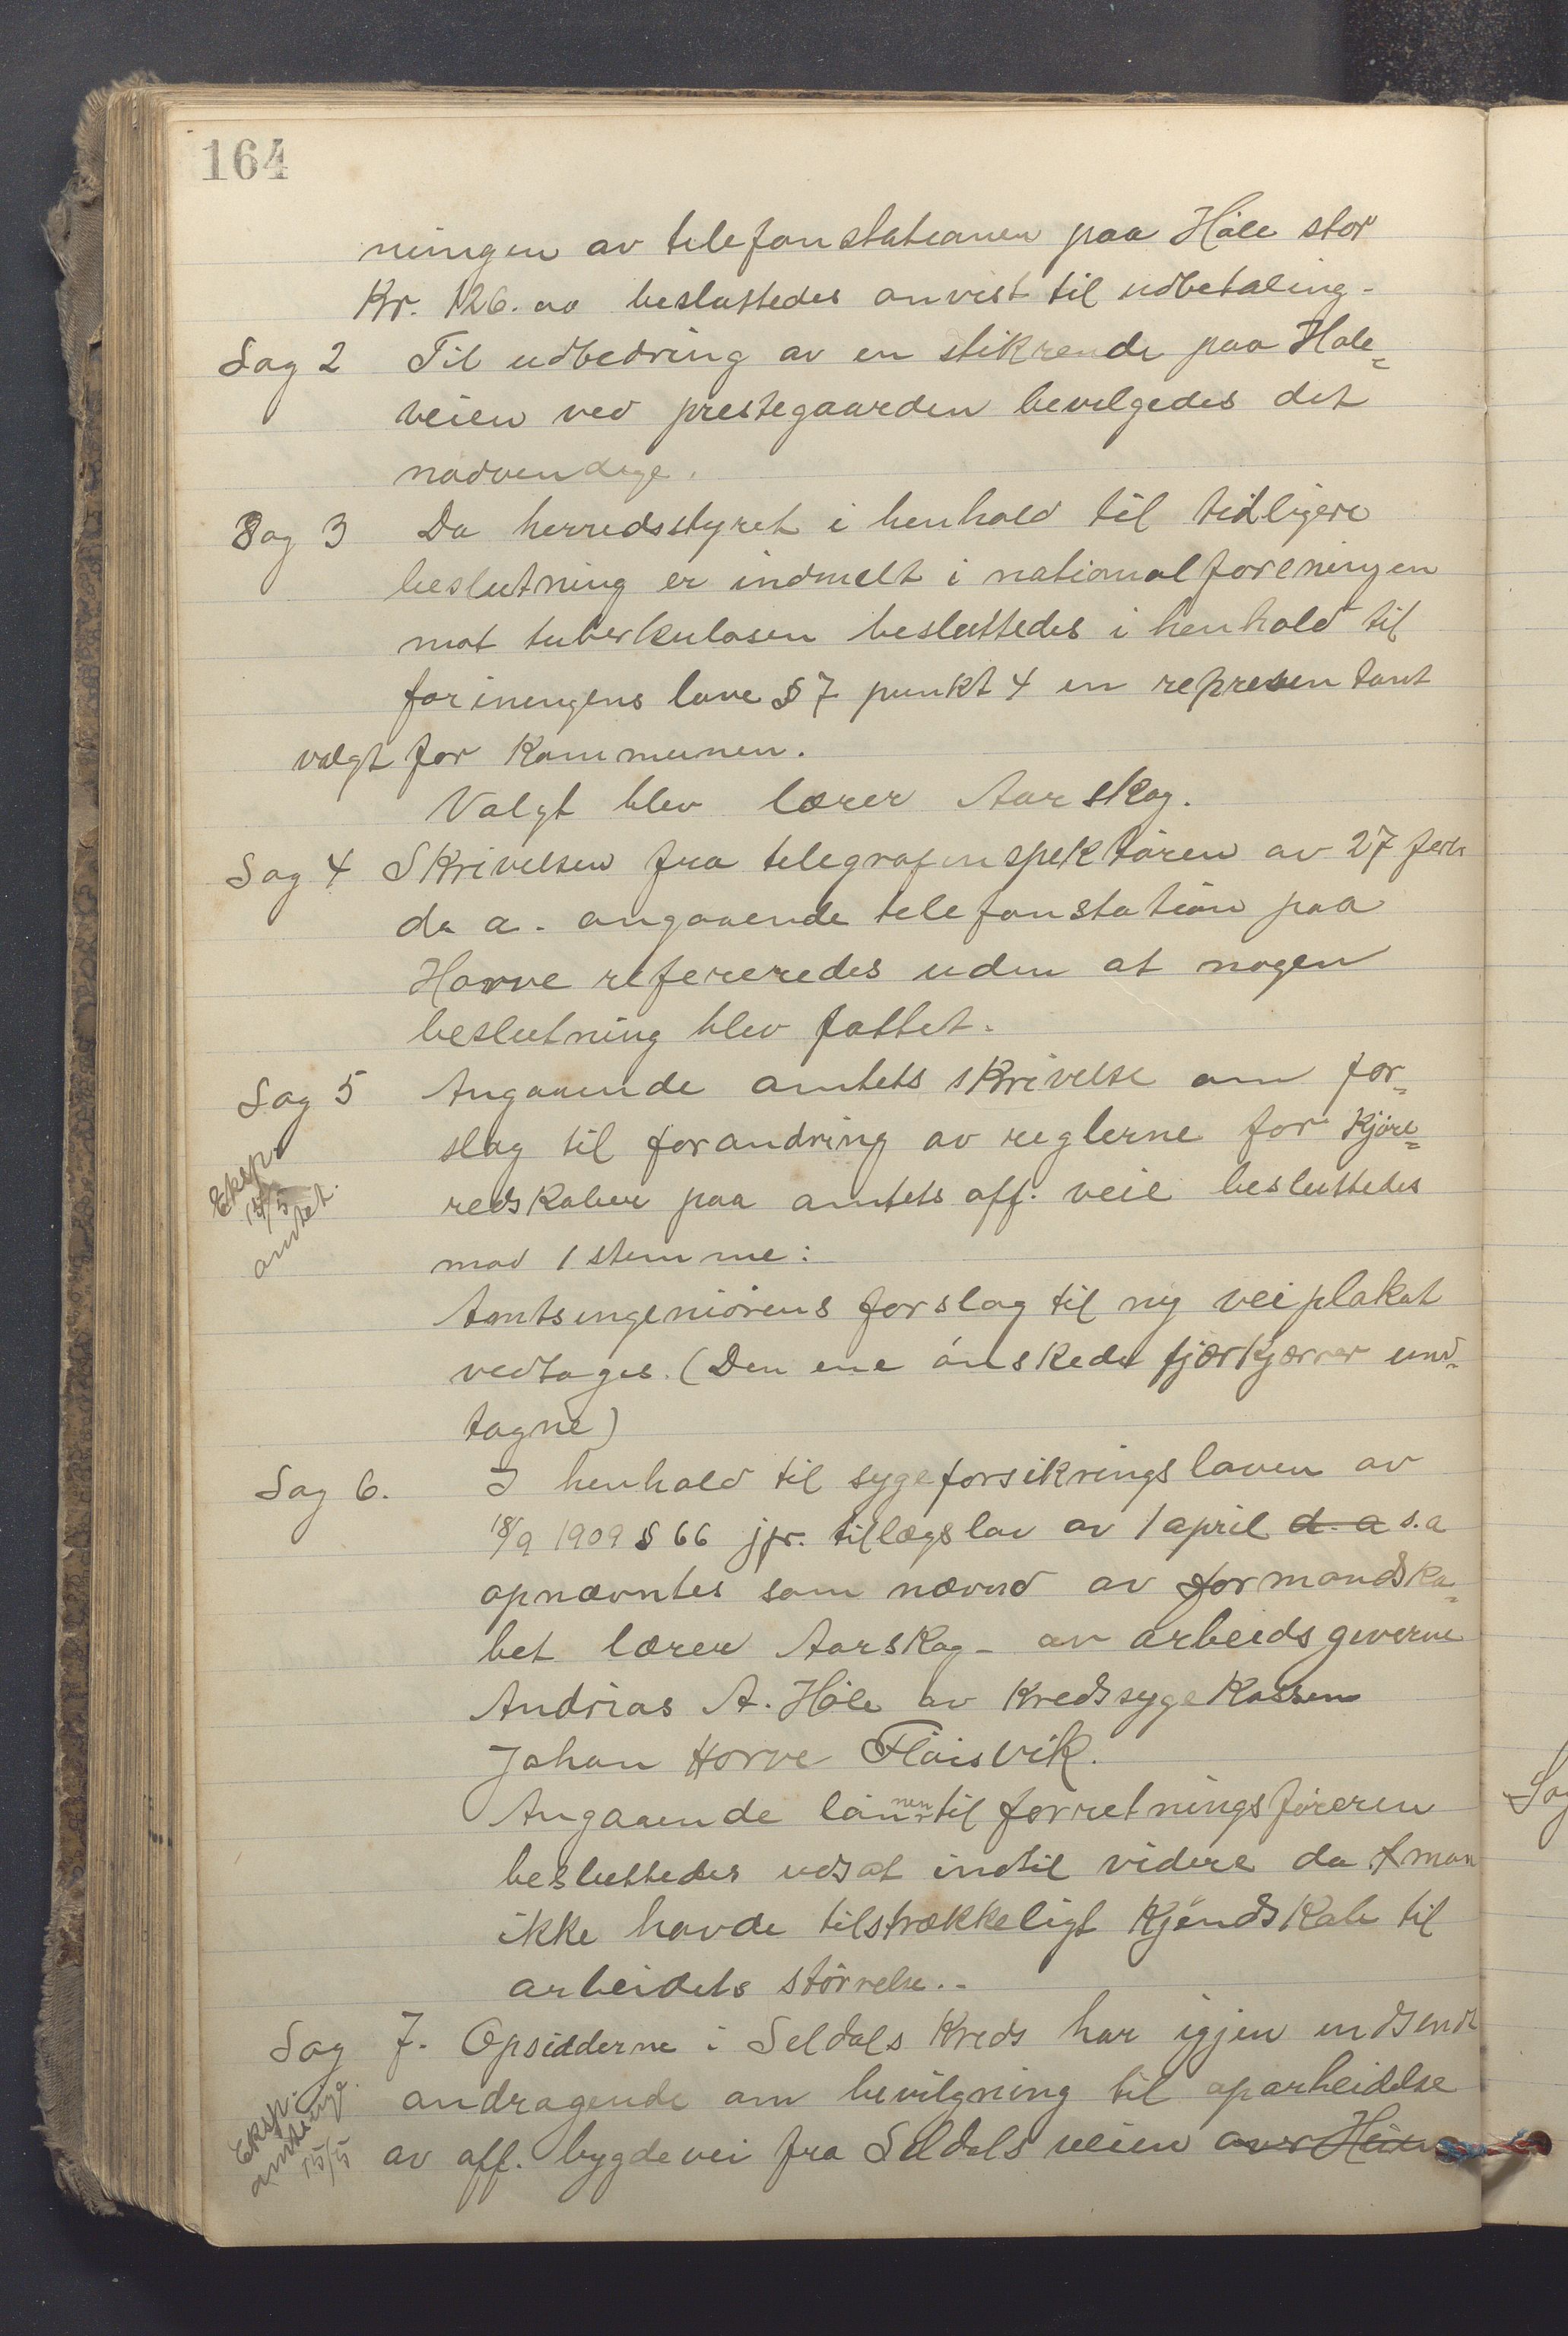 164
ningen av telefonstationen paa Høle stor
Kr. 126.00 besluttedes anvist til udbetaling.
Sag 2 Til udbedring av en stikrende paa Høle-
veien ved prestegaarden bevilgedes det
nødvendige.
Sag 3 Da herredsstyret i henhold til tidligere
beslutning er indmelt i nationalforeningen
mot tuberkulosen besluttedes i henhold til
foreningens lave § 7 punkt 4 en representant
valgt for Kommunen.
Valgt blev lærer Aarskog.
Sag 4 Skrivelsen fra telegrafinspektøren av 27 febr
d. a. angaaende telefonstation paa
Horve refereredes uden at nogen
beslutning blev fattet.
Sag 5 Angaaende amtets skrivelse om for-
slag til forandring av reglerne for Kjøre-
redskaber paa amtets off. veie besluttedes
mod 1 stemme:
Eksp.
15/5
amtet.
Amtsingeniørens forslag til ny veiplakat
vedtages. (Den ene ønskede fjærkjærrer und-
tagne)
Sag 6. I henhold til sygeforsikringsloven av
18/9 1909 § 66 jfr. tillægslov av 1 april d. a s.a
opnævntes som nævnd av formandska-
bet lærer Aarskog - av arbeidsgiverne
Andreas A. Høle av Kredssygekassen
Johan Horve Fløisvik.
Angaaende lønnen til forretningsføreren
besluttedes udsat indtil videre da man
ikke havde tilstrækkeligt Kjendskab til
arbeidets størrelse..
Sag 7. Opsidderne i Seldals Kreds har igjen indsendt
andragende om bevilgning til oparbeidelse
av off. bygdevei fra Seldals veien over Heien
Eksp.
amtsing.
15/5
Sag